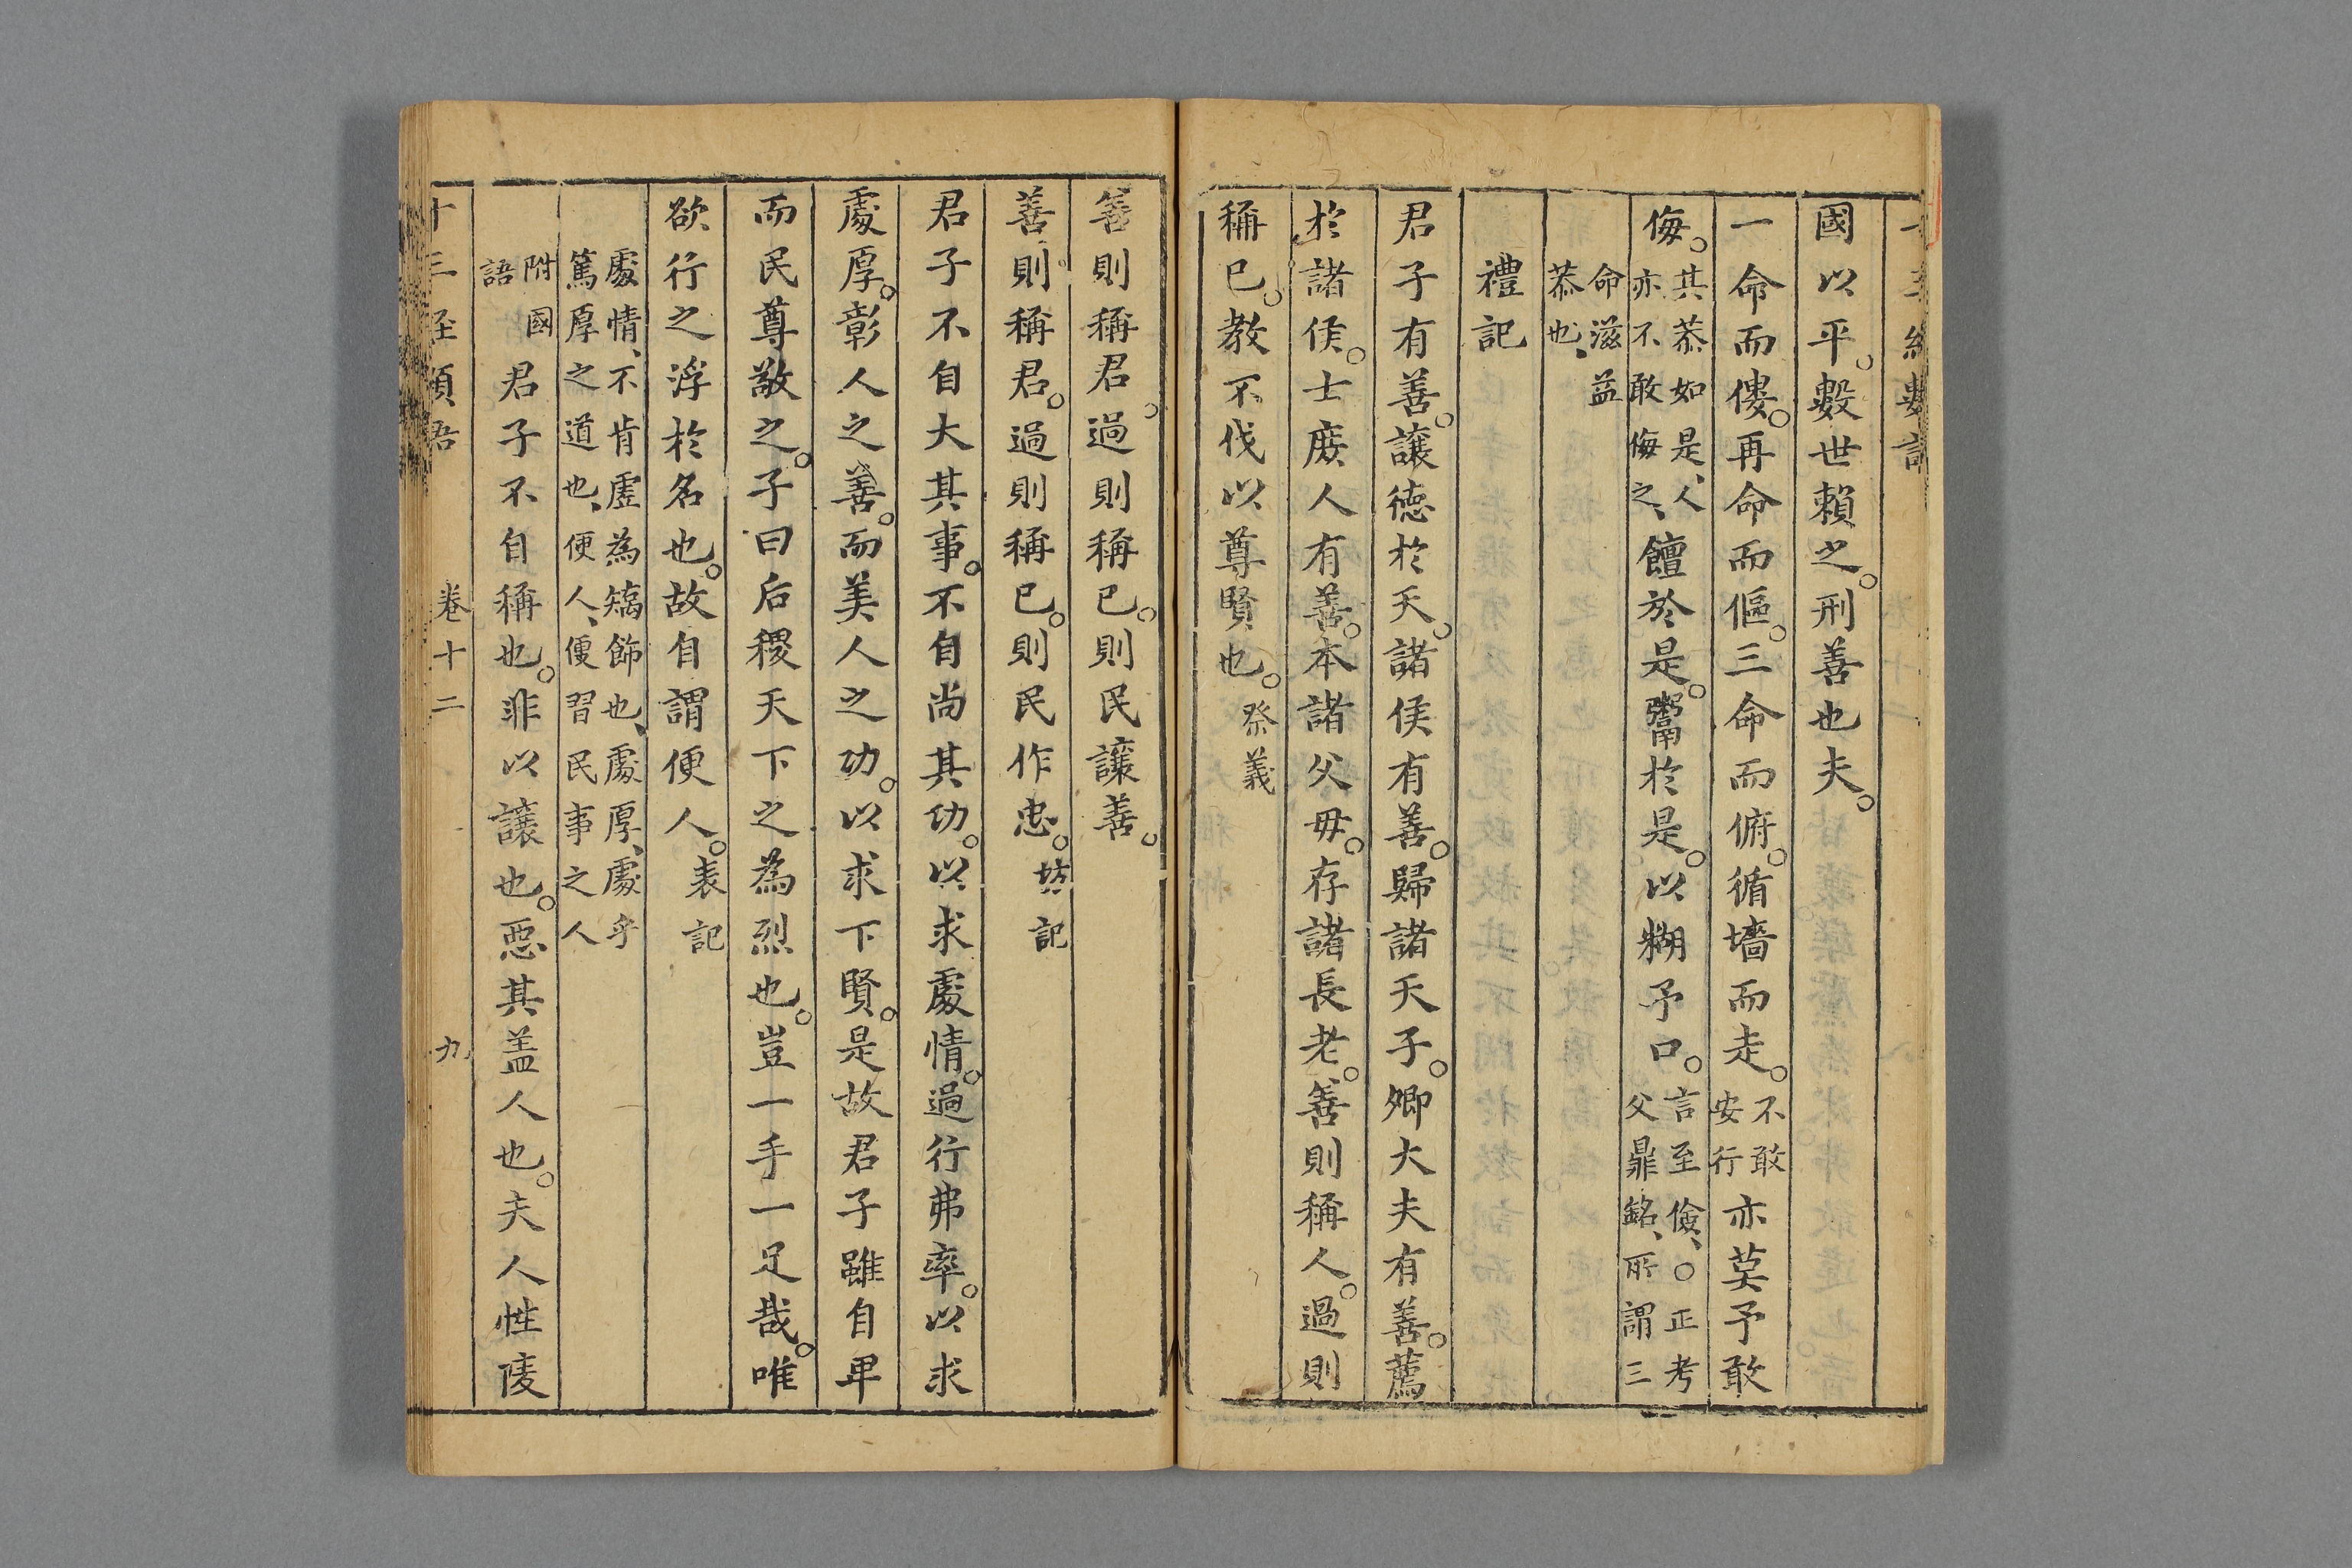 國以平。數世賴之。刑善也夫。
一命而僂。再命而傴。三命而俯。循墻而走。不敢安行亦莫予敢
侮。其恭如是、人亦不敢侮之、饘於是。鬻於是。以糊予口。言至儉、○正考父鼎銘、所謂三
命滋益恭也、
禮記
君子有善。讓德於天。諸侯有善。歸諸天子。卿大夫有善。薦
於諸侯。士庶人有善。本諸父母。存諸長老。善則稱人。過則
稱已。教不伐以尊賢也。祭義
善則稱君。過則稱已。則民讓善。
善則稱君。過則稱已。則民作忠。坊記
君子不自大其事。不自尚其功。以求處情。過行弗率。以求
處厚。彰人之善。而美人之功。以求下賢。是故君子雖自卑
而民尊敬之。子曰后稷天下之為烈也。豈一手一足哉。唯
欲行之浮於名也。故自謂便人。表記
處情、不肯虛為矯飾也、處厚、處乎篤厚之道也、便人、便習民事之人
附國語君子不自稱也。非以讓也。惡其蓋人也。夫人性陵
卷十二 九